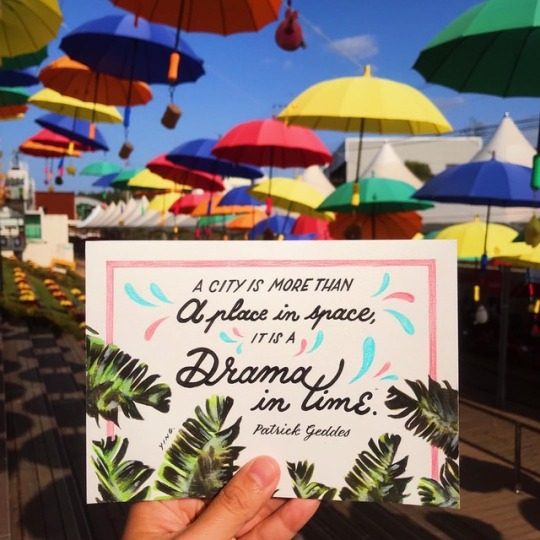 A CITY IS MORE THAN
a place in space,
IT IS A
Drama
in time.
Patrick Geddes
YING.